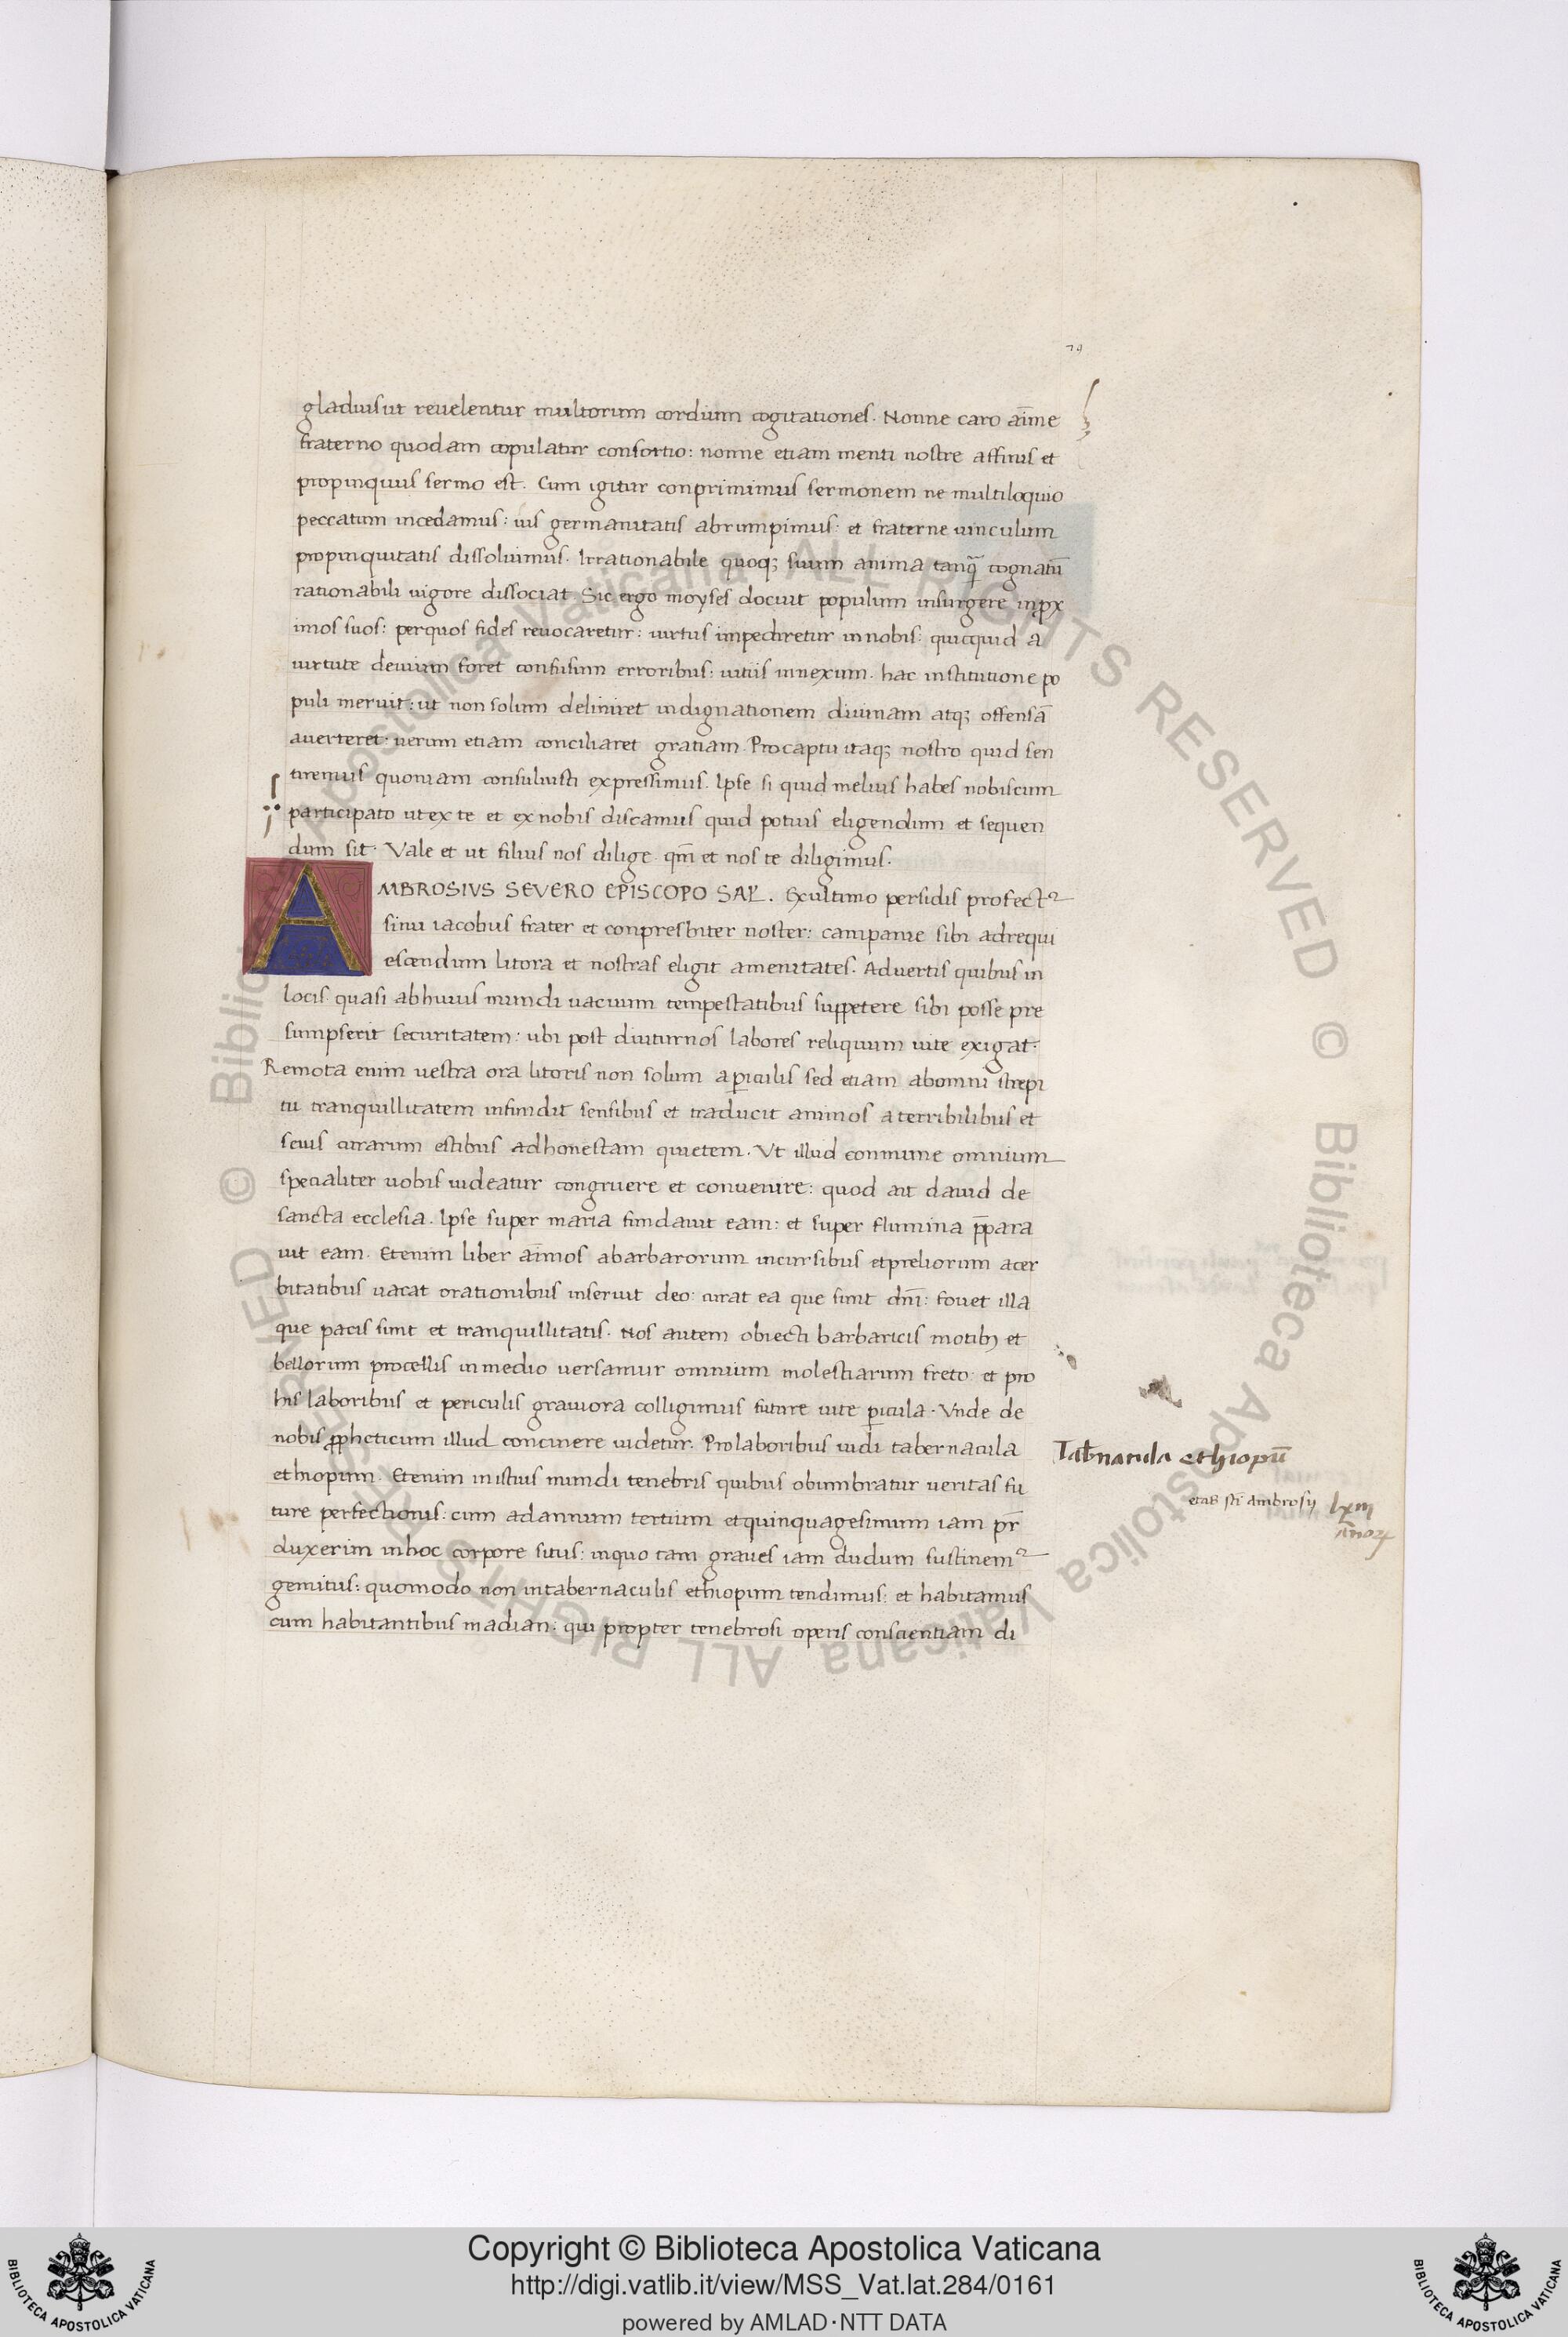 79
gladius ut reuelentur multorum cordium cogitationes. Nonne caro aīme
fraterno quodam copulatur consortio: nonne etiam menti nostre affinis et
propinquus sermo est. Cum igitur conprimimus sermonem ne multiloquio
peccatum incedamus: uis germanitatis abrumpimus: et fraterne uinculum
propinquitatis dissoluimus. Irrationabile quoq; suum anima tanq̃ cognatū
rationabili uigore dissociat. Sic ergo moyses docuit populum insurgere in ꝓx
imos suos: per quos fides reuocaretur: uirtus impediretur in nobis: quicquid a
uirtute deuium foret confusum erroribus: uitiis innexum. hac institutione po
puli meruit: ut non solum deliniret indignationem diuinam atq; offensā
auerteret: uerum etiam conciliaret gratiam. Pro captu itaq; nostro quid sen
tiremus quoniam consuluisti expressimus. Ipse si quid melius habes nobiscum
participato ut ex te et ex nobis discamus quid potius eligendum et sequen
dum sit. Vale et ut filius nos dilige. qm̄ et nos te diligimus.
AMBROSIVS SEVERO EPISCOPO SAL. Ex ultimo persidis profect᷒
sinu iacobus frater et conpresbiter noster: campanie sibi ad requi
escendum litora et nostras eligit amenitates. Aduertis quibus in
locis quasi ab huius mundi uacuum tempestatibus suppetere sibi posse pre
sumpserit securitatem: ubi post diuturnos labores reliquum uite exigat.
Remota enim uestra ora litoris non solum a ꝑiculis sed etiam ab omni strepi
tu tranquillitatem infundit sensibus et traducit animos a terribilibus et
scuis curarum estibus ad honestam quietem. Vt illud commune omnium
specialiter uobis uideatur congruere et conuenire: quod ait dauid de
sancta ecclesia. Ipse super maria fundauit eam: et super flumina p̄para
uit eam. Etenim liber aīmos a barbarorum incursibus et preliorum acer
bitatibus uacat orationibus inseruit deo: curat ea que sunt dn̄i: fouet illa
que pacis sunt et tranquillitatis. Nos autem obiecti barbaricis motibꝫ et
bellorum procellis in medio uersamur omnium molestiarum freto: et pro
his laboribus et periculis grauiora colligimus future uite ꝑicula. Vnde de
nobis ꝓpheticum illud concinere uidetur. Pro laboribus uidi tabernacula
ethiopum. Etenim in istius mundi tenebris quibus obumbratur ueritas fu
ture perfectionis: cum ad annum tertium et quinquagesimum iam pr̄
duxerim in hoc corpore situs: in quo tam graues iam dudum sustinem᷒
gemitus: quomodo non in tabernaculis ethiopum tendimus: et habitamus
cum habitantibus madian: qui propter tenebrosi operis conscientiam di
ethiopū
sti Ambrosij
Copyright © Biblioteca Apostolica Vaticana
http://digi.vatlib.it/view/MSS_Vat.lat.284/0161
powered by AMLAD·NTT DATA
BIBLIOTECA APOSTOLICA VATICANA
BIBLIOTECA APOSTOLICA VATICANA
© Biblioteca Apostolica Vaticana ALL RIGHTS RESERVED
© Biblioteca Apostolica Vaticana ALL RIGHTS RESERVED